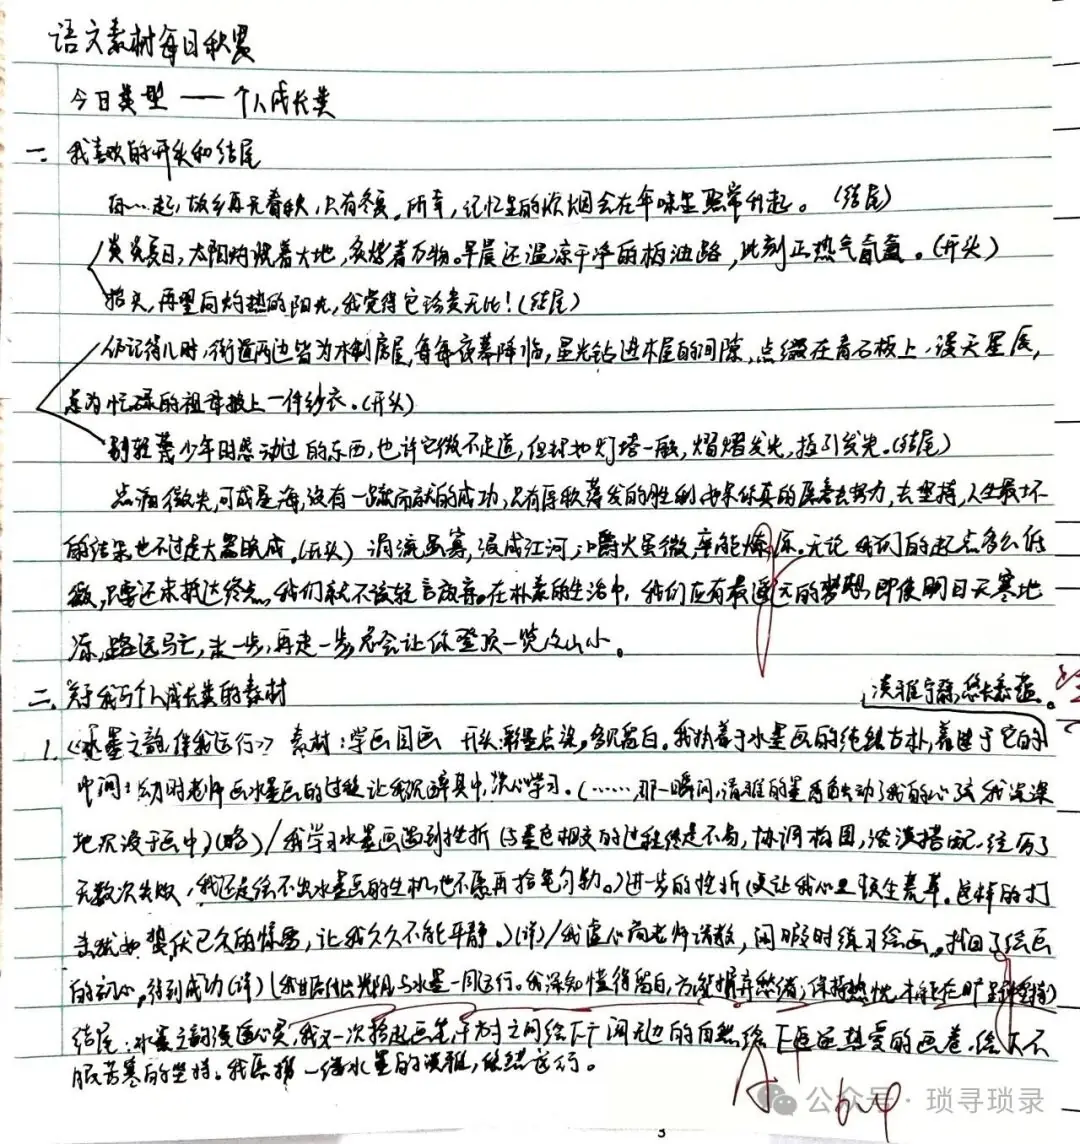 语文素材每日积累
今日类型——个人成长类
一、我喜欢的开头和结尾
再也无春秋，只有冬夏。所幸，记忆里的炊烟会在年味里照常升起。（结尾）
炎炎夏日，太阳灼烧着大地，炙烤着万物。早晨还温凉干净的柏油路，此刻正热气氤氲。（开头）
抬头，再望向灼热的阳光，我觉得它珍贵无比！（结尾）
仍记得儿时，街道两边皆为木制房屋，每每夜幕降临，星光钻进木屋的间隙，点缀在青石板上，漫天星辰，
为忙碌的祖母披上一件纱衣。（开头）
别轻蔑少年时感动过的东西，也许它微不足道，但却如灯塔一般，熠熠发光，指引（结尾）
点滴微光，可成星海，没有一蹴而就的成功，只有厚积薄发的胜利。如果你真的愿意去努力，去坚持，人生最坏
的结果也不过是大器晚成。（开头）涓流虽寡，浸成江河；爝火虽微，卒能燎原。无论我们的起点多么低
微，只要还未抵达终点，我们就不该轻言放弃。在朴素的生活中，我们应有最遥远的梦想，即使明日天寒地
冻，路远马亡，走一步，再走一步，总会让你登顶一览众山小。
二、关于我写个人成长类的素材
淡雅宁静，悠长
1.《水墨之韵，伴我远行》 素材：学画国画 开头：留白。我执着于水墨画的纯粹古朴，着迷于它的
中间：幼时老师画水墨画的过程让我沉醉其中，决心学习。（……，那一瞬间，清雅的墨香触动了我的心弦，我深深
地沉浸于画中）（略）/我学习水墨画遇到挫折（与墨色相交的过程终是不易，协调构图，浓淡搭配，经历了
无数次失败，我还是绘不出水墨画的生机，也不愿再抬笔勾勒。）进一步的挫折（更让我心里顿生荒草。这样的打
击就如蛰伏已久的惊雷，让我久久不能平静。）（详）/我虚心向老师请教，闲暇时练习绘画，找回了绘画
的初心，得到成功（详）（我甘愿付出光阴与水墨一同远行。我深知懂得留白，方能摒弃愁绪；保持热忱，才能
结尾：水墨之韵浸透心灵，我又一次抬起画笔，于方寸之间绘下广阔无边的自然，绘下遥远热爱的画卷，绘下不
服苦寒的坚持。我愿携一缕水墨的淡雅，悠然远行。
A+
3
公众号·琐寻琐录